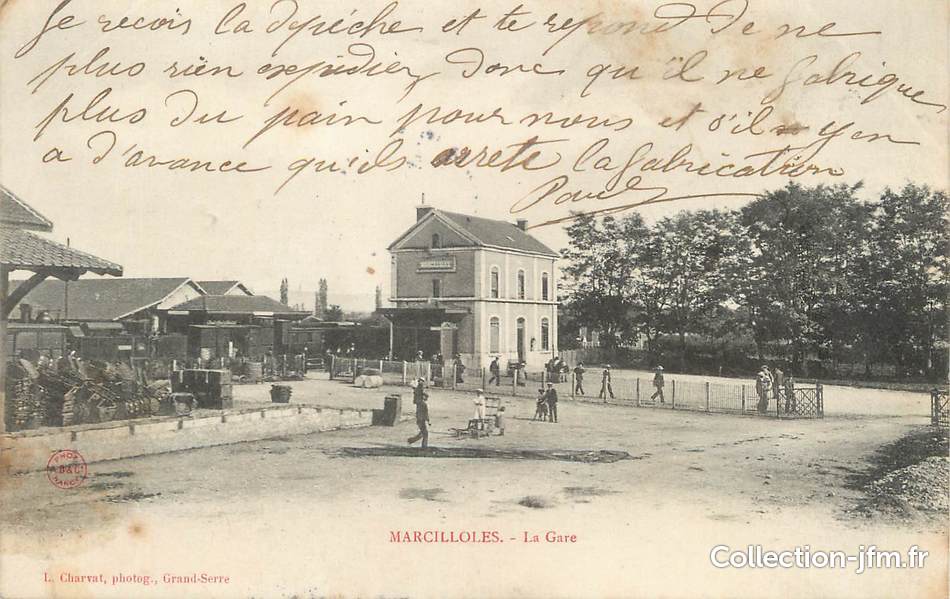 Je reçois la dépèche et te repond De ne
plus rien expédier, Donc qu'il ne fabrique
plus Du pain pour nous et s'il y en
a D'avance qu'ils arrete la fabrication
Paul
MARCILLOLES. - La Gare
L. Charvat, photog., Grand-Serre
Collection-jfm.fr